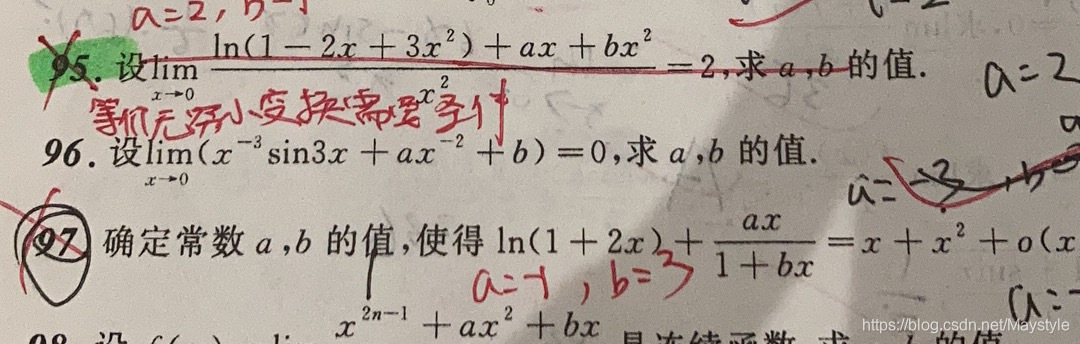 a=2,
95. 设lim x→0 (ln(1-2x+3x²)+ax+bx²)/x² =2,求 a,b 的值. a=2
等价无穷小变换需要条件
96. 设lim x→0 (x⁻³sin3x+ax⁻²+b)=0,求 a,b 的值.
a=-3
97 确定常数 a,b 的值,使得 ln(1+2x)+ax/(1+bx)=x+x²+o(x
a=-1, b=3 a=-
x²ⁿ⁻¹+ax²+bx
https://blog.csdn.net/Maystyle